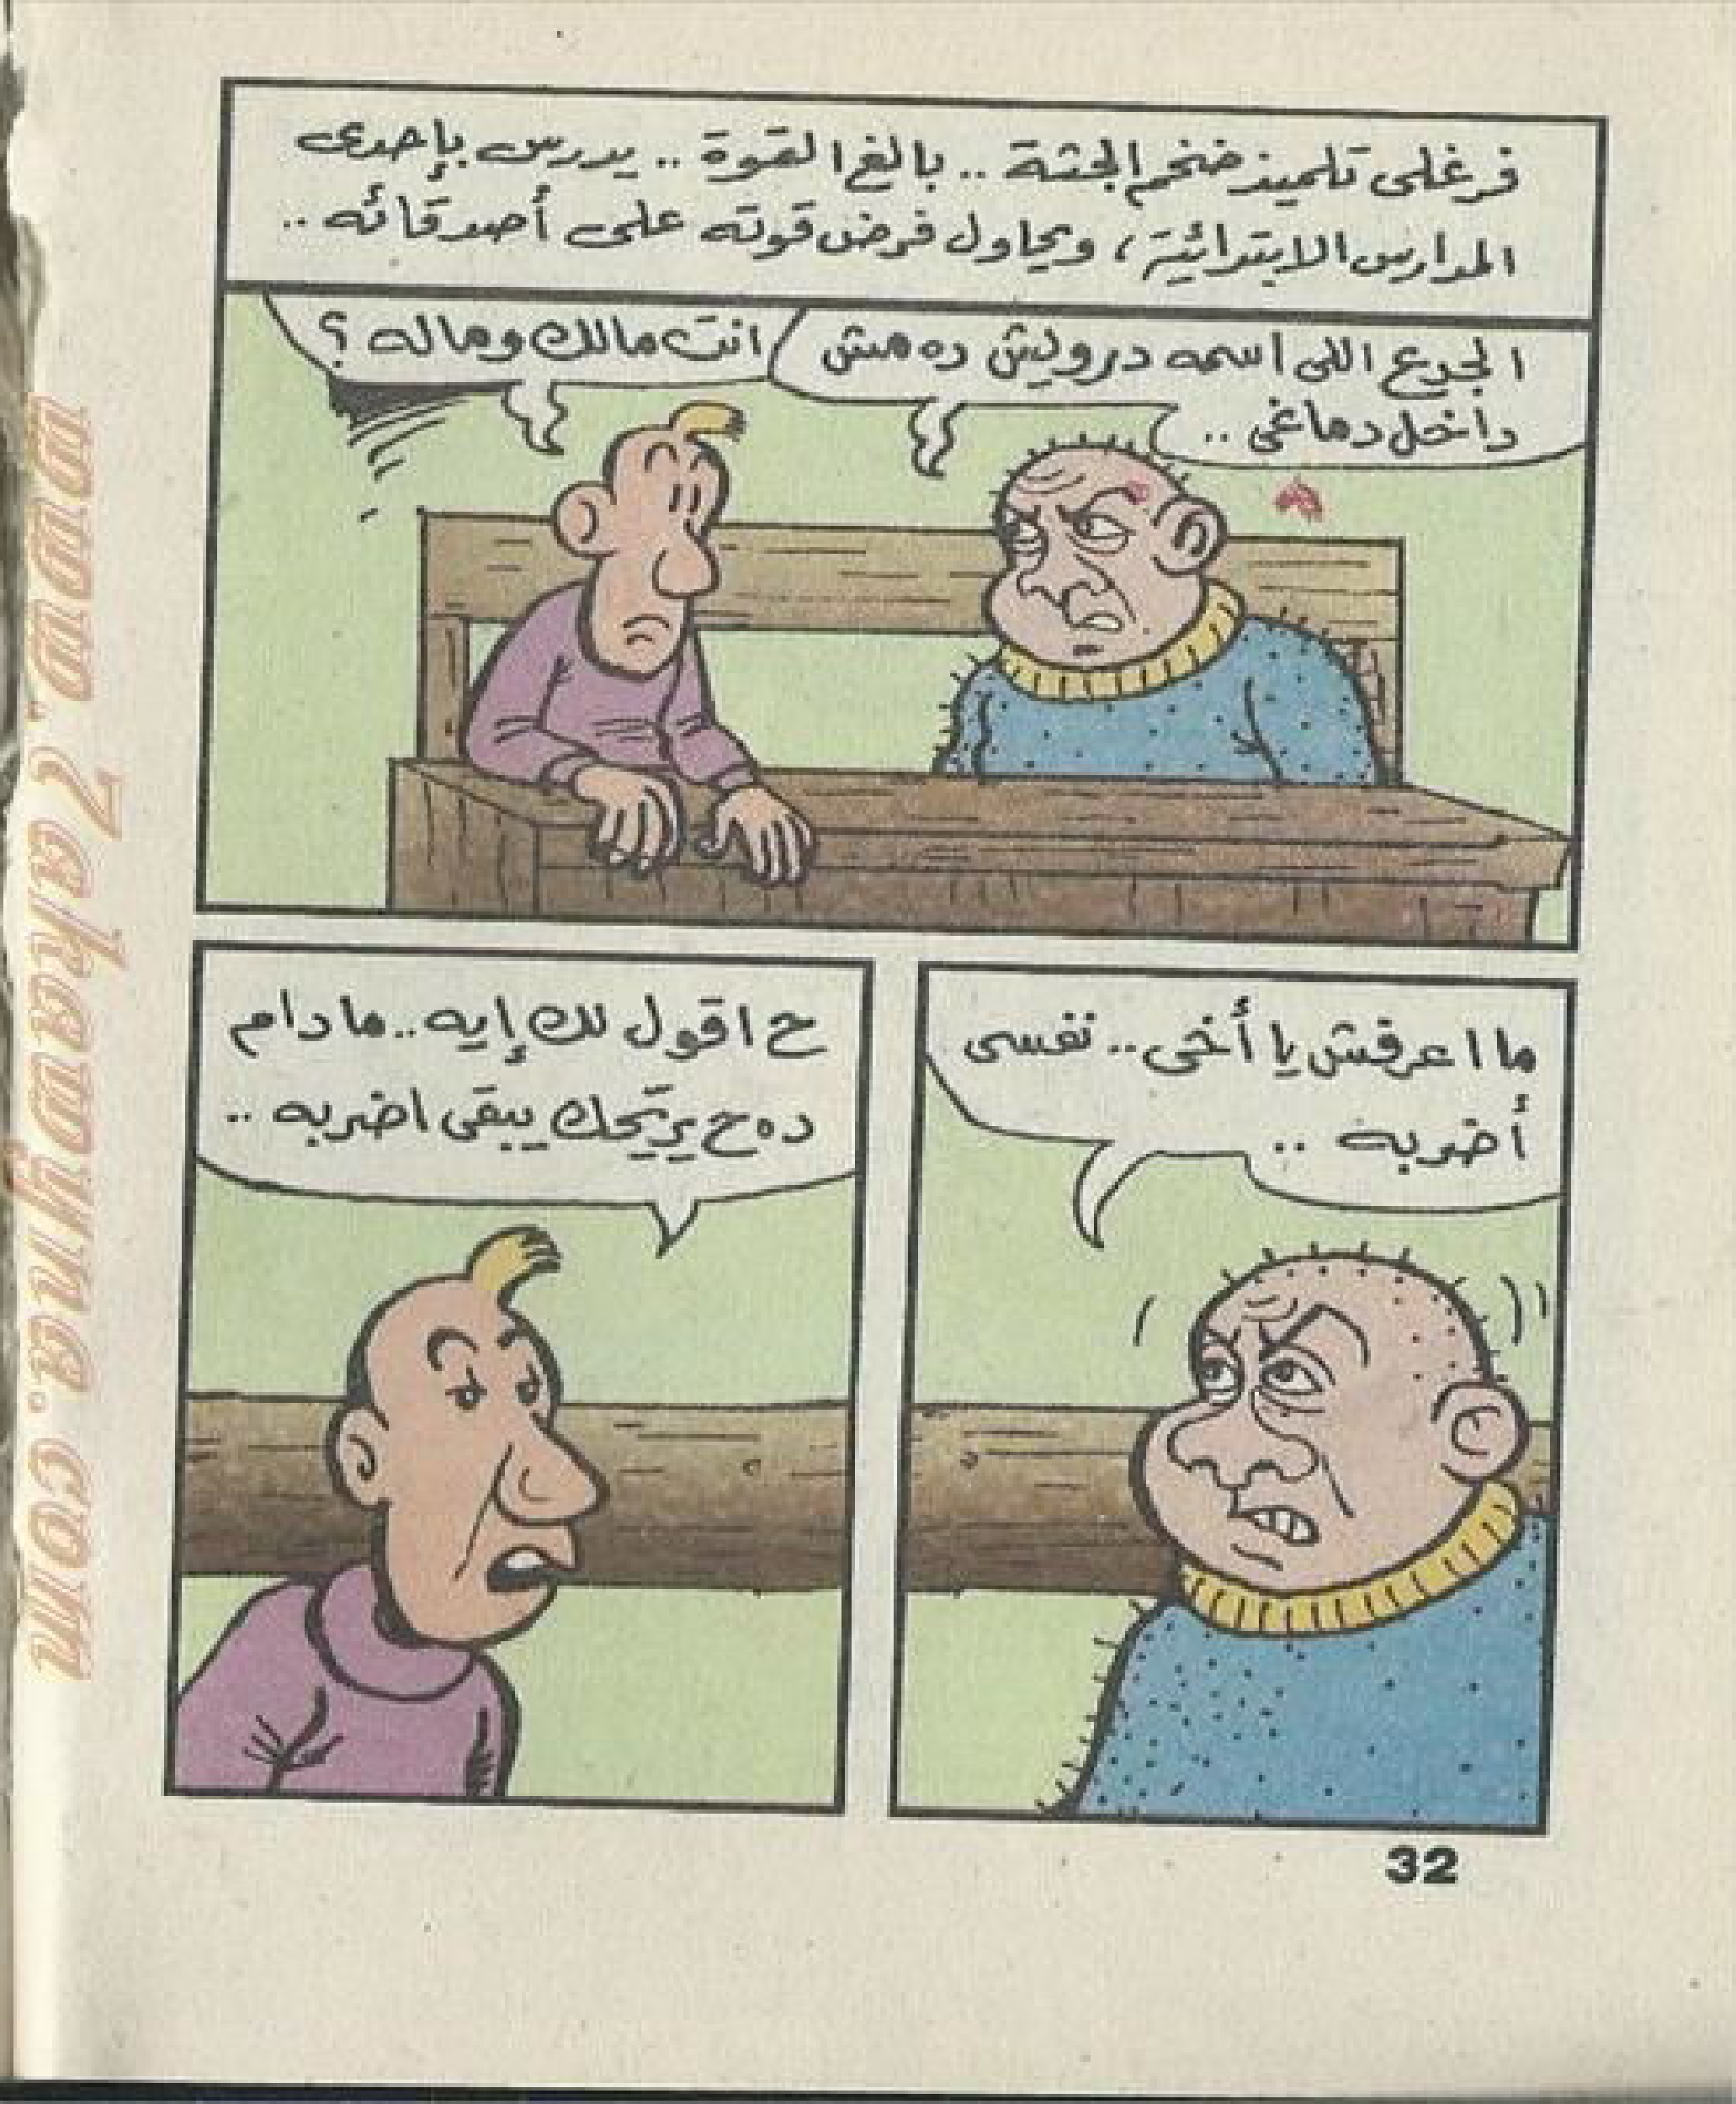 فرغلى تلميذ ضخم الجثة .. بالغ القوة .. يدرس بإحدى
المدارس الابتدائية، ويحاول فرض قوته على أصدقائه ..
الجدع اللى اسمه درويش ده مش
داخل دماغى ..
انت مالك وماله ؟
ما اعرفش يا أخى .. نفسى
أضربه ..
ح اقول لك إيه .. مادام
ده ح يريّحك يبقى اضربه ..
32
www.Zakrawyna.com